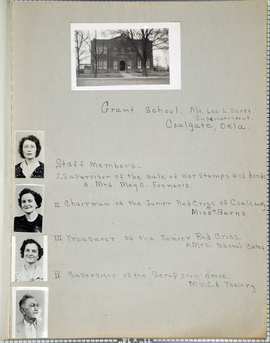 Grant School. Mr. Leo L. Scott
Superintendent.
Coalgate, Okla.
Staff Members-
I Supervisor of the sale of war stamps and bonds
Mrs. May C.
II Chairman of the Junior Red Cross of Coalgate
Miss Burns
III Treasurer of the Junior Red Cross.
Mrs. Naomi
IV Supervisor of the "Scrap Iron" drive.
Mr. C.E.